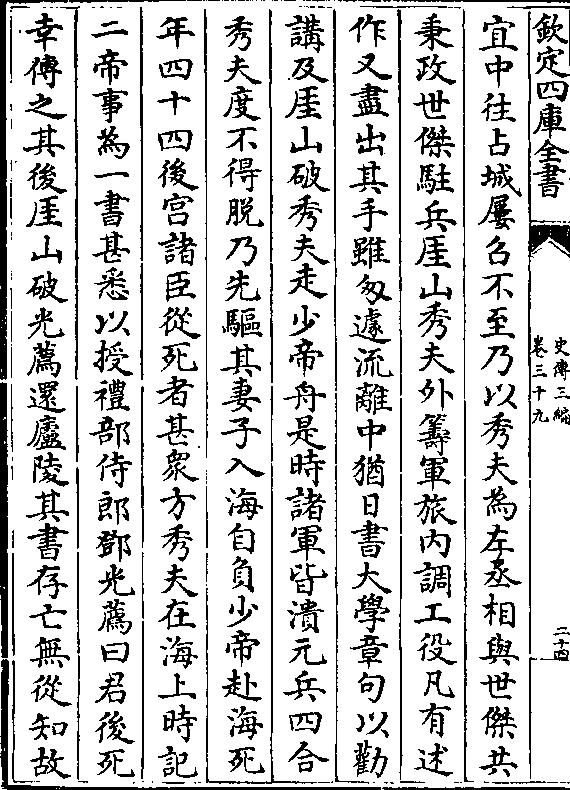 欽定四庫全書
史傳三編
卷三十九
二十四
宜中往占城屢召不至乃以秀夫為左丞相與世傑共
秉政世傑駐兵厓山秀夫外籌軍旅內調工役凡有述
作又盡出其手雖匆遽流離中猶日書大學章句以勸
講及厓山破秀夫走少帝舟是時諸軍皆潰元兵四合
秀夫度不得脫乃先驅其妻子入海自負少帝赴海死
年四十四後宮諸臣從死者甚衆方秀夫在海上時記
二帝事為一書甚悉以授禮部侍郎鄧光薦曰君後死
幸傳之其後厓山破光薦還廬陵其書存亡無從知故